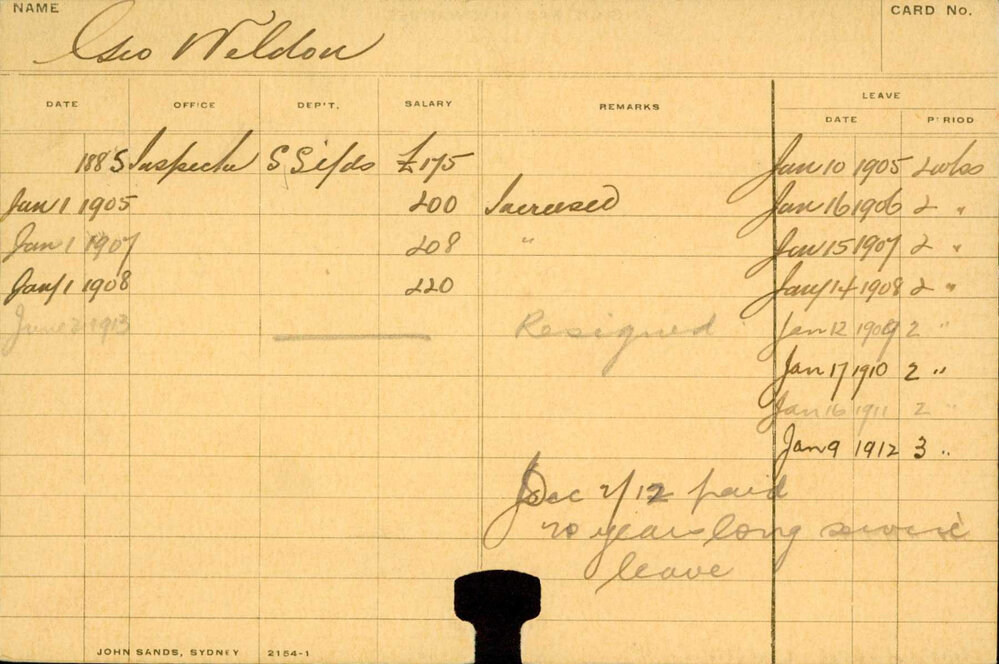 NAME
CARD No.
Geo Weldon
DATE OFFICE DEP'T. SALARY REMARKS LEAVE
DATE PERIOD
1885 Inspector S Silds £175 Jan 10 1905 2 wks
Jan 1 1905 200 Increased Jan 16 1906 2 "
Jan 1 1907 208 " Jan 15 1907 2 "
Jany 1 1908 220 Jany 14 1908 2 "
June 2 1913 Resigned Jan 12 1909 2 "
Jan 17 1910 2 "
Jan 16 1911 2 "
Jan 9 1912 3 "
Dec 7/12 paid
20 years long service
leave
JOHN SANDS, SYDNEY 2154-1